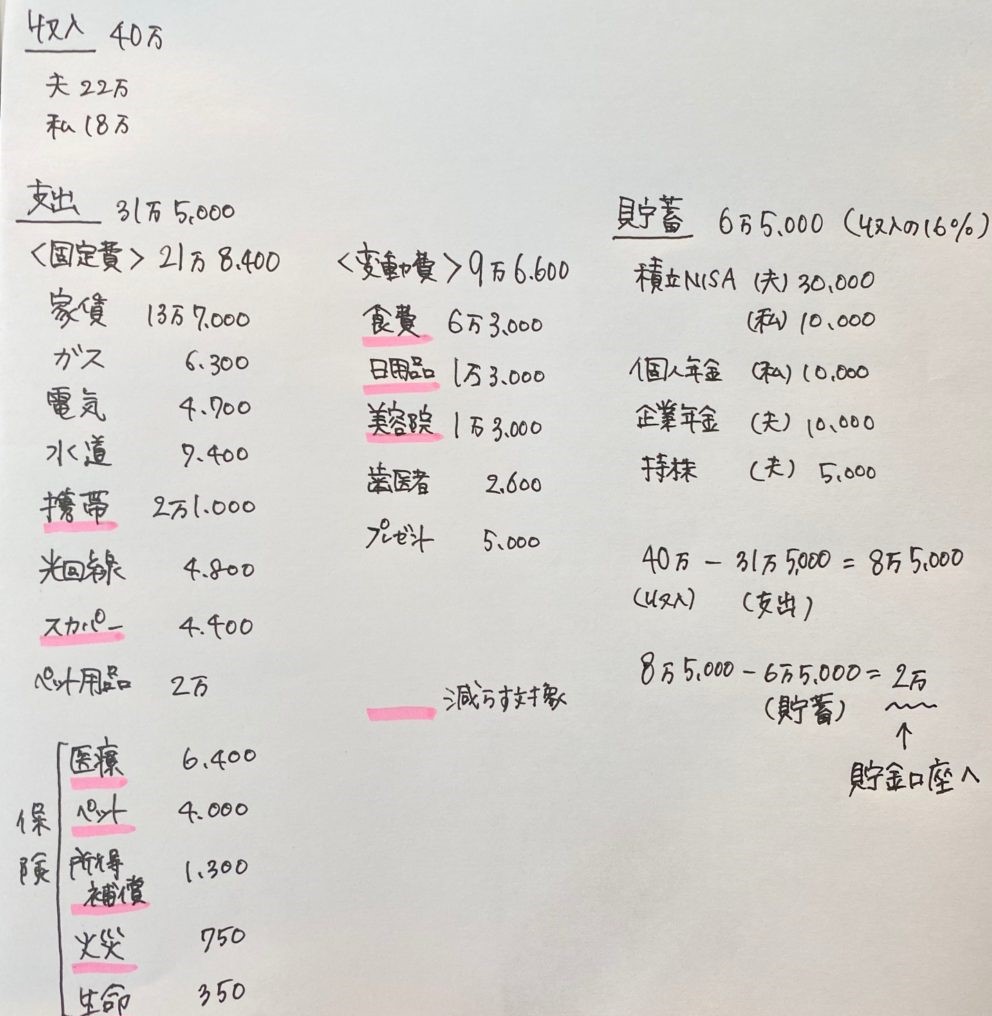 収入 40万
夫 22万
私 18万
支出 31万5,000
<固定費> 21万8.400
家賃 13万7,000
ガス 6.300
電気 4.700
水道 7.400
携帯 2万1.000
光回線 4.800
スカパー 4.400
ペット用品 2万
保険
医療 6.400
ペット 4.000
所得補償 1.300
火災 750
生命 350
<変動費> 9万6.600
食費 6万3,000
日用品 1万3.000
美容院 1万3.000
歯医者 2.600
プレゼント 5.000
減らす対象
貯蓄 6万5,000 (収入の16%)
積立NISA (夫) 30,000
(私) 10,000
個人年金 (私) 10,000
企業年金 (夫) 10,000
持株 (夫) 5,000
40万 - 31万5,000 = 8万5,000
(収入) (支出)
8万5,000 - 6万5,000 = 2万
(貯蓄)
↑
貯金口座へ